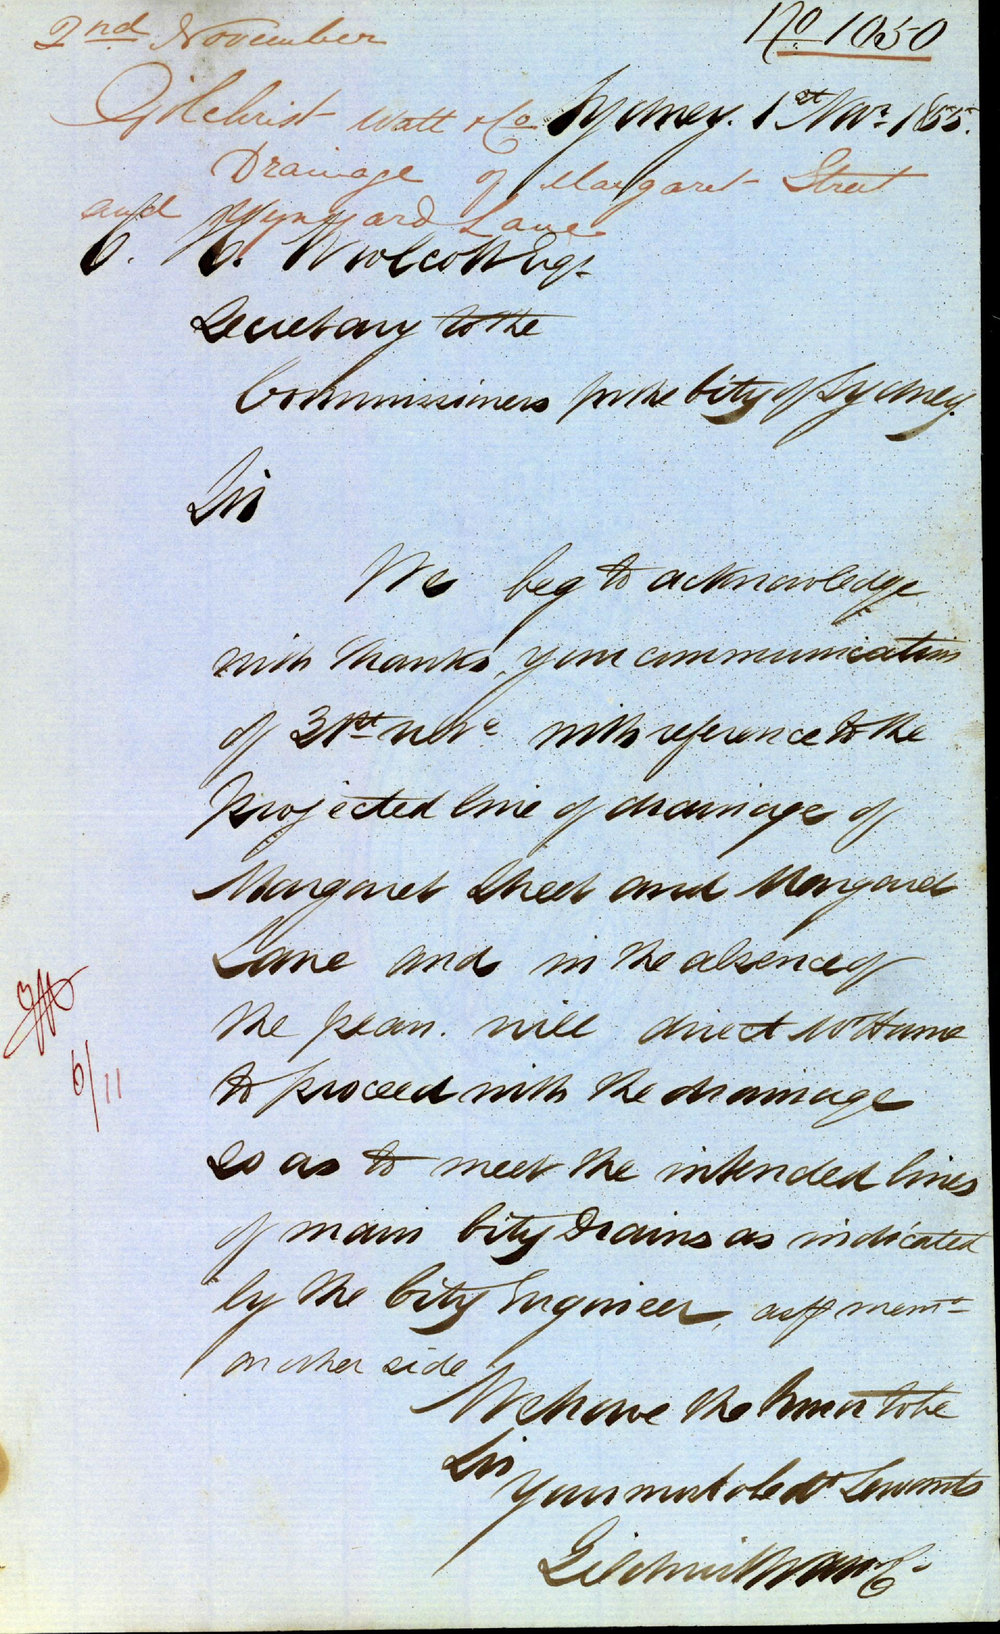 2nd November
No 1050
Gilchrist Watt & Co
Sydney. 1st Novr. 1855.
Drainage of Margaret Street
and Wynyard Lane
C. H. Woolcott Esqr
Secretary to the
Commissioners for the City of Sydney.
Sir
We beg to acknowledge
with thanks, your communication
of 31st with reference to the
projected line of drainage of
Margaret Street and Margaret
Lane and in the absence of
the plan. will direct Mr Hume
to proceed with the drainage
so as to meet the intended lines
of main City Drains as indicated
by the City Engineer, as pr memo
on other side
6/11
We have the honor to be
Sir
Your most obedt Servants
Gilchrist Watt & Co